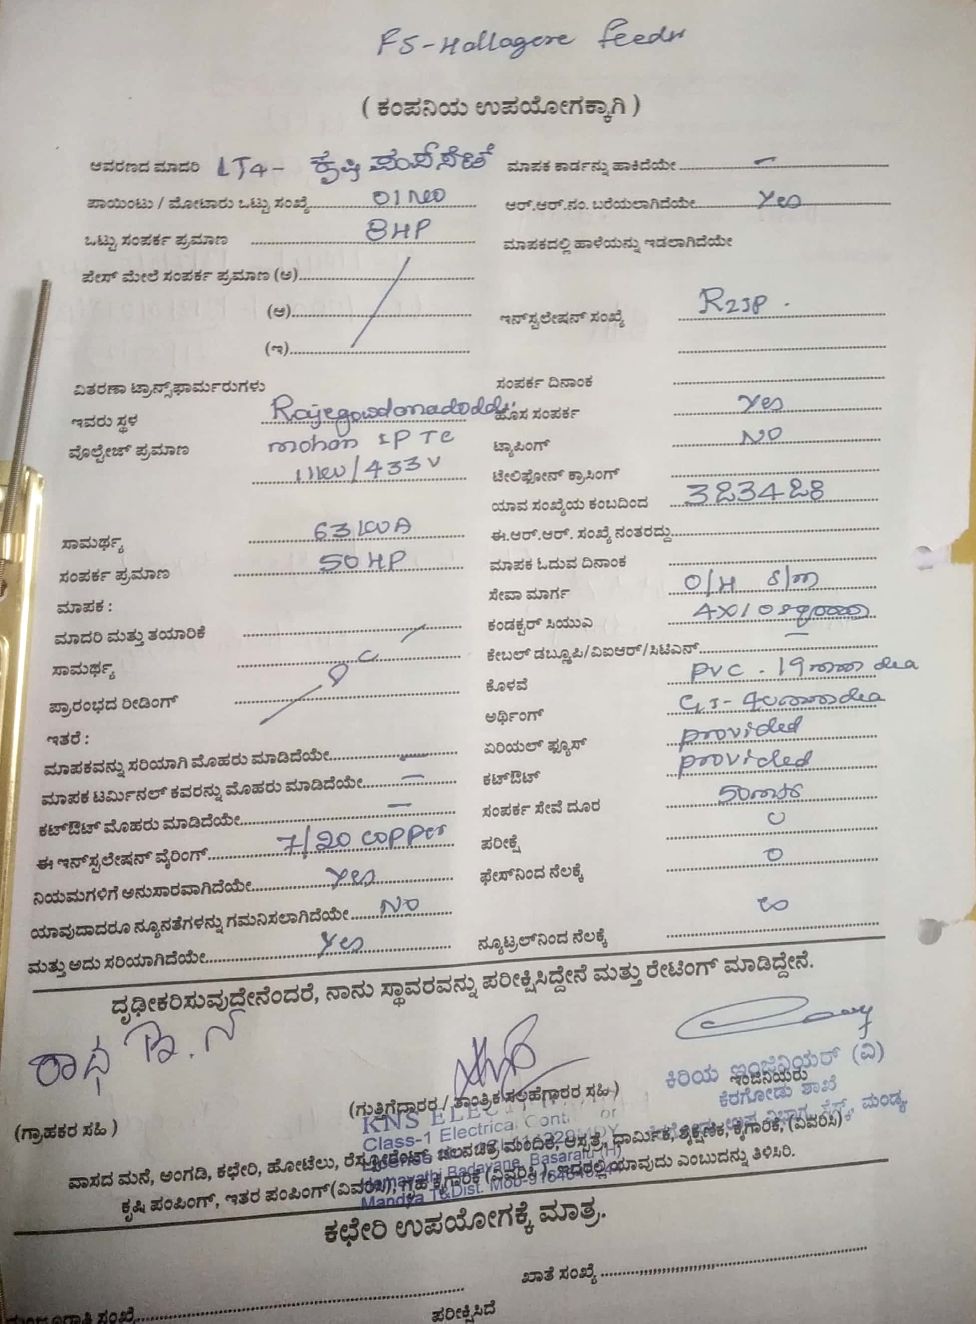 F5-Hallagere feeder
( ಕಂಪನಿಯ ಉಪಯೋಗಕ್ಕಾಗಿ )
ಆವರಣದ ಮಾದರಿ LT4- ಕೃಷಿ ಪಂಪ್‌ಸೆಟ್ ಮಾಪಕ ಕಾರ್ಡನ್ನು ಹಾಕಿದೆಯೇ —
ಪಾಯಿಂಟು / ಮೋಟಾರು ಒಟ್ಟು ಸಂಖ್ಯೆ 01 No ಆರ್.ಆರ್.ನಂ. ಬರೆಯಲಾಗಿದೆಯೇ Yes
ಒಟ್ಟು ಸಂಪರ್ಕ ಪ್ರಮಾಣ 8HP ಮಾಪಕದಲ್ಲಿ ಹಾಳೆಯನ್ನು ಇಡಲಾಗಿದೆಯೇ
ಫೇಸ್ ಮೇಲೆ ಸಂಪರ್ಕ ಪ್ರಮಾಣ (ಅ)
(ಆ) ಇನ್‌ಸ್ಟಲೇಷನ್ ಸಂಖ್ಯೆ
(ಇ)
ವಿತರಣಾ ಟ್ರಾನ್ಸ್‌ಫಾರ್ಮರುಗಳು ಸಂಪರ್ಕ ದಿನಾಂಕ
ಇವರು ಸ್ಥಳ Rajegowdanadoddi ಹೊಸ ಸಂಪರ್ಕ Yes
ವೊಲ್ಟೇಜ್ ಪ್ರಮಾಣ mohan IP TC ಟ್ಯಾಪಿಂಗ್ NO
11kv/433v ಟೇಲಿಫೋನ್ ಕ್ರಾಸಿಂಗ್
ಯಾವ ಸಂಖ್ಯೆಯ ಕಂಬದಿಂದ
ಸಾಮರ್ಥ್ಯ 63 kVA ಈ.ಆರ್.ಆರ್. ಸಂಖ್ಯೆ ನಂತರದ್ದು
ಸಂಪರ್ಕ ಪ್ರಮಾಣ 50 HP ಮಾಪಕ ಓದುವ ದಿನಾಂಕ
ಮಾಪಕ : ಸೇವಾ ಮಾರ್ಗ O/H S/m
ಮಾದರಿ ಮತ್ತು ತಯಾರಿಕೆ ಕಂಡಕ್ಟರ್ ಸಿಯುಎ 4X10 sqmm
ಸಾಮರ್ಥ್ಯ ಕೇಬಲ್ ಡಬ್ಲೂಪಿ/ವಿಐಆರ್/ಸಿಟಿಎಸ್ —
ಪ್ರಾರಂಭದ ರೀಡಿಂಗ್ ಕೊಳವೆ PVC - 19mm dia
ಇತರೆ : ಅರ್ಥಿಂಗ್ G.I- 40mm dia
ಮಾಪಕವನ್ನು ಸರಿಯಾಗಿ ಮೊಹರು ಮಾಡಿದೆಯೇ — ಏರಿಯಲ್ ಫ್ಯೂಸ್ provided
ಮಾಪಕ ಟರ್ಮಿನಲ್ ಕವರನ್ನು ಮೊಹರು ಮಾಡಿದೆಯೇ — ಕಟ್‌ಔಟ್ provided
ಕಟ್‌ಔಟ್ ಮೊಹರು ಮಾಡಿದೆಯೇ — ಸಂಪರ್ಕ ಸೇವೆ ದೂರ 50mts
ಈ ಇನ್‌ಸ್ಟಲೇಷನ್ ವೈರಿಂಗ್ 7/20 copper ಪರೀಕ್ಷೆ
ನಿಯಮಗಳಿಗೆ ಅನುಸಾರವಾಗಿದೆಯೇ Yes ಫೇಸ್‌ನಿಂದ ನೆಲಕ್ಕೆ
ಯಾವುದಾದರೂ ನ್ಯೂನತೆಗಳನ್ನು ಗಮನಿಸಲಾಗಿದೆಯೇ NO
ಮತ್ತು ಅದು ಸರಿಯಾಗಿದೆಯೇ Yes ನ್ಯೂಟ್ರಲ್‌ನಿಂದ ನೆಲಕ್ಕೆ
ದೃಢೀಕರಿಸುವುದೇನೆಂದರೆ, ನಾನು ಸ್ಥಾವರವನ್ನು ಪರೀಕ್ಷಿಸಿದ್ದೇನೆ ಮತ್ತು ರೇಟಿಂಗ್ ಮಾಡಿದ್ದೇನೆ.
ಕಿರಿಯ ಇಂಜಿನಿಯರ್ (ವಿ)
ಇಂಜಿನಿಯರು
ಕೆರಗೋಡು ಶಾಖೆ
(ಗುತ್ತಿಗೆದಾರರ / ತಾಂತ್ರಿಕ ಸಲಹೆಗಾರರ ಸಹಿ)
(ಗ್ರಾಹಕರ ಸಹಿ)
KNS
Class-1 Electrical
ವಾಸದ ಮನೆ, ಅಂಗಡಿ, ಕಛೇರಿ, ಹೋಟೆಲು, ರೆಸ್ಟೋರೆಂಟ್, ಚಲನಚಿತ್ರ ಮಂದಿರ, ಆಸ್ಪತ್ರೆ, ಧಾರ್ಮಿಕ, ಶೈಕ್ಷಣಿಕ, ಕೈಗಾರಿಕೆ, (ವಿವರಿಸಿ)
ಕೃಷಿ ಪಂಪಿಂಗ್, ಇತರ ಪಂಪಿಂಗ್(ವಿವರಿಸಿ), ಗೃಹ ಕೈಗಾರಿಕೆ (ವಿವರಿಸಿ), ಇದರಲ್ಲಿ ಯಾವುದು ಎಂಬುದನ್ನು ತಿಳಿಸಿರಿ.
ಕಛೇರಿ ಉಪಯೋಗಕ್ಕೆ ಮಾತ್ರ.
ಖಾತೆ ಸಂಖ್ಯೆ
ಪರೀಕ್ಷಿಸಿದೆ